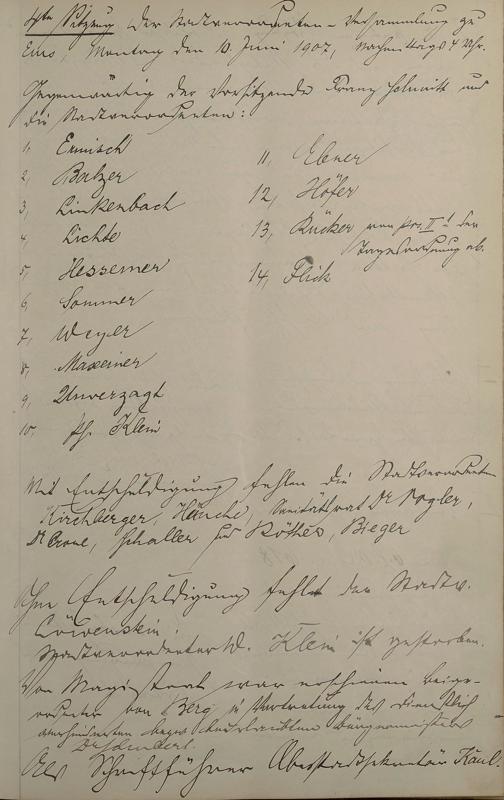 4te Sitzung der Stadtverordneten-Versammlung zu
Ems, Montag den 10. Juni 1907, Nachmittags 4 Uhr.
Gegenwärtig der Vorsitzende Franz Schmitt und
die Stadtverordneten:
1, Ermisch
2, Balzer
3, Linkenbach
4, Lichte
5, Hessemer
6, Sommer
7, Weyer
8, Maxeiner
9, Unverzagt
10, Ph. Klein
11, Ebner
12, Höfer
13, Rücker von pos. II der
Tagesordnung ab.
14, Flick
Mit Entschuldigung fehlen die Stadtverordneten
Kirchberger, Sanitätsrat Dr Vogler,
Dr Schaller Röther, Bieger
Ohne Entschuldigung fehlt der Stadtv.
Löwenstein.
Stadtverordneter W. Klein ist gestorben.
Vom Magistrat war erschienen Beige-
ordneter von Berg in Vertretung des dienstlich
verhinderten bezw. beurlaubten Bürgermeisters
Als Schriftführer Oberstadtsekretär Kaul.